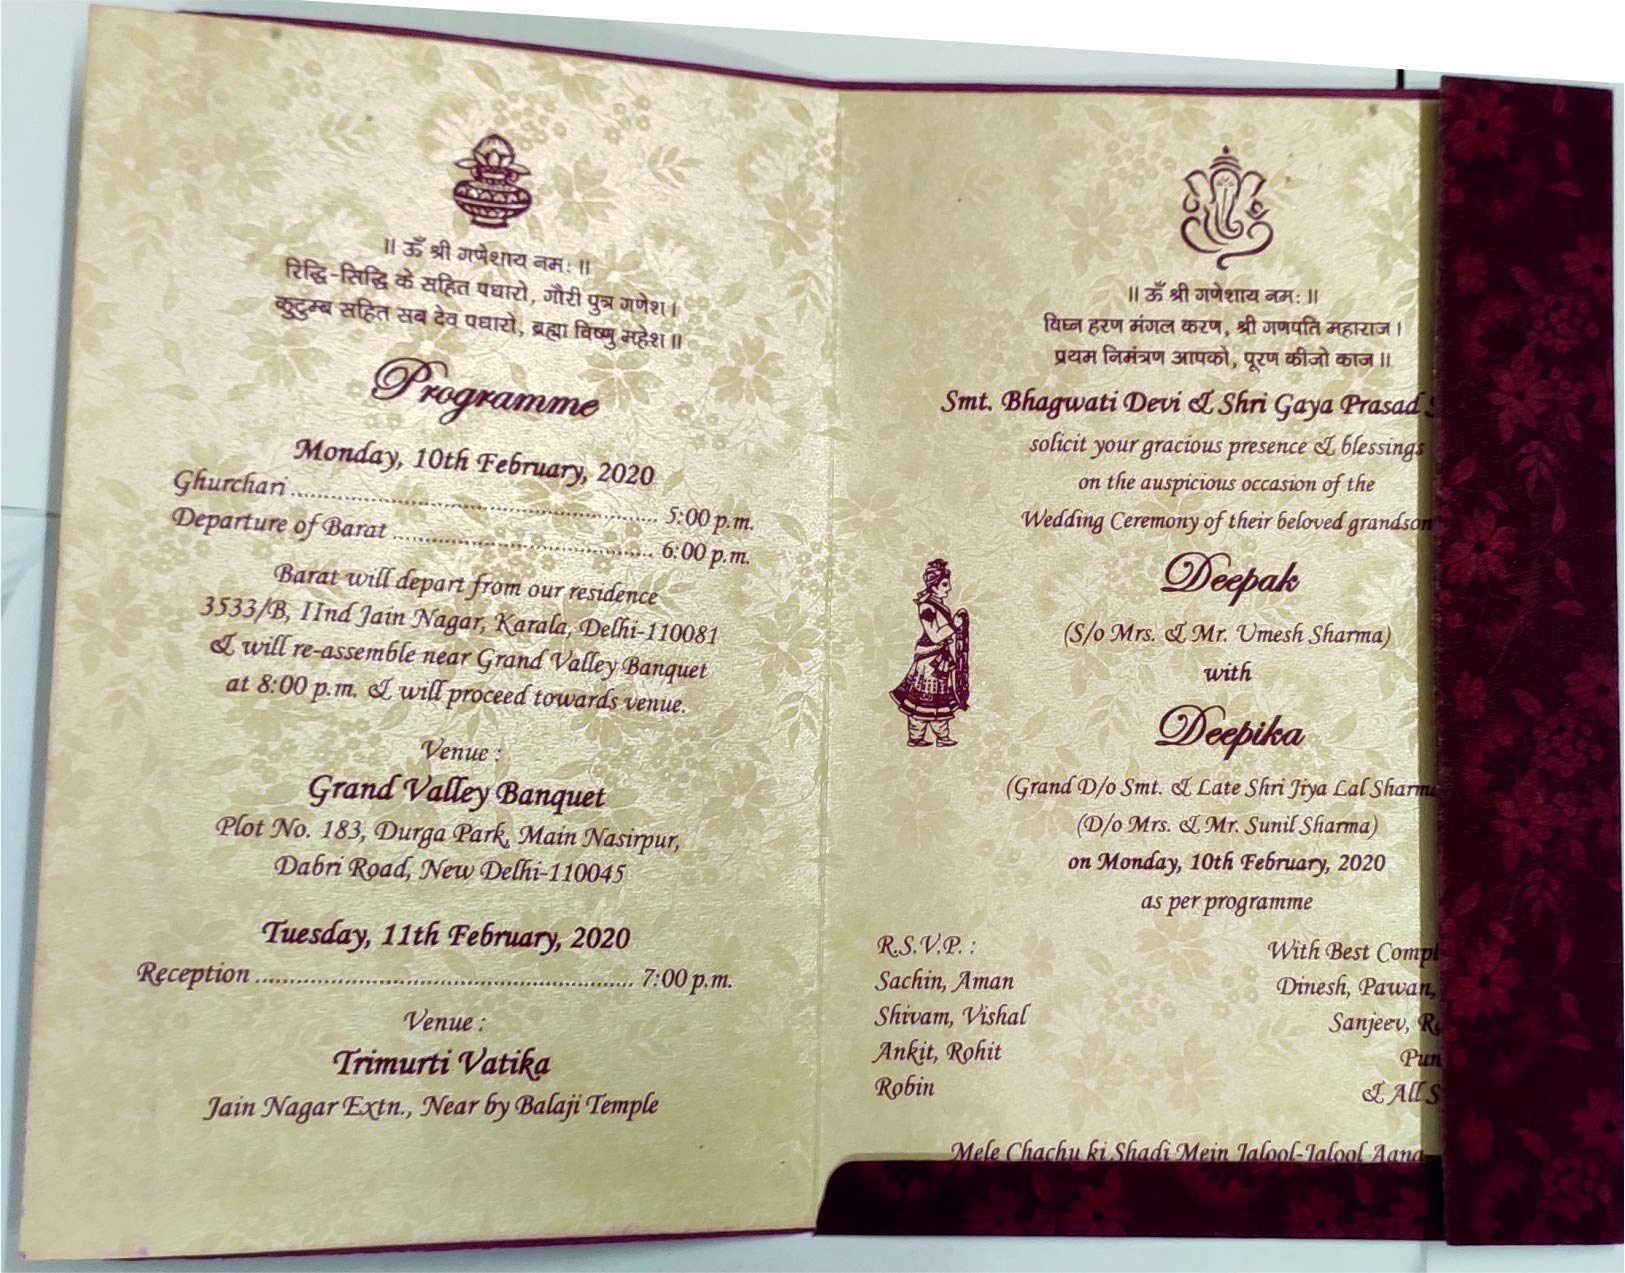 ॥ ॐ श्री गणेशाय नमः ॥
रिद्धि-सिद्धि के सहित पधारो, गौरी पुत्र गणेश।
कुटुम्ब सहित सब देव पधारो, ब्रह्मा विष्णु महेश॥
Programme
Monday, 10th February, 2020
Ghurchari ........................................................ 5:00 p.m.
Departure of Barat ........................................ 6:00 p.m.
Barat will depart from our residence
3533/B, IInd Jain Nagar, Karala, Delhi-110081
& will re-assemble near Grand Valley Banquet
at 8:00 p.m. & will proceed towards venue.
Venue :
Grand Valley Banquet
Plot No. 183, Durga Park, Main Nasirpur,
Dabri Road, New Delhi-110045
Tuesday, 11th February, 2020
Reception ........................................................ 7:00 p.m.
Venue :
Trimurti Vatika
Jain Nagar Extn., Near by Balaji Temple
॥ ॐ श्री गणेशाय नमः ॥
विघ्न हरण मंगल करण, श्री गणपति महाराज।
प्रथम निमंत्रण आपको, पूरण कीजो काज॥
Smt. Bhagwati Devi & Shri Gaya Prasad
solicit your gracious presence & blessings
on the auspicious occasion of the
Wedding Ceremony of their beloved grandson
Deepak
(S/o Mrs. & Mr. Umesh Sharma)
with
Deepika
(Grand D/o Smt. & Late Shri Jiya Lal Sharma
(D/o Mrs. & Mr. Sunil Sharma)
on Monday, 10th February, 2020
as per programme
R.S.V.P. :
Sachin, Aman
Shivam, Vishal
Ankit, Rohit
Robin
With Best
Dinesh, Pawan,
Sanjeev,
& All
Mele Chachu ki Shadi Mein Jalool-Jalool Aana